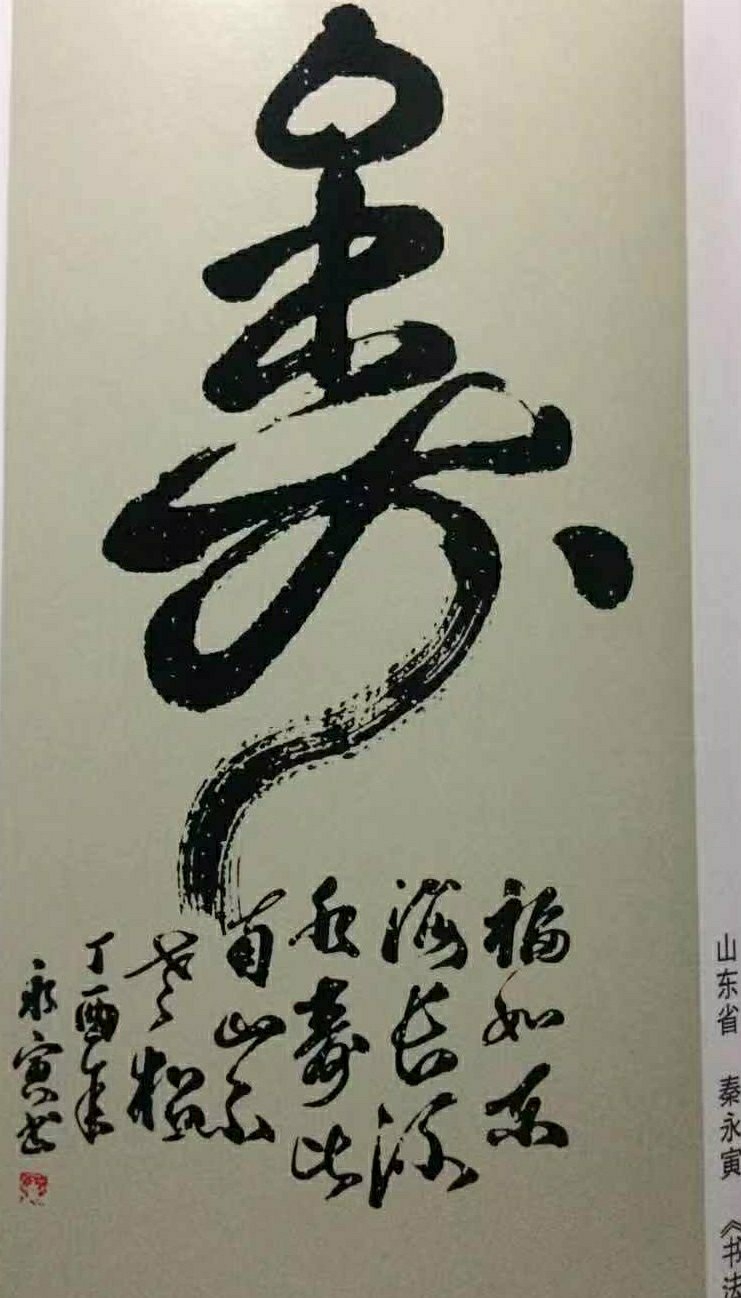 寿
福如东
海长流
水寿比
南山不
老松
丁酉年
永寅书
山东省 秦永寅 《书法